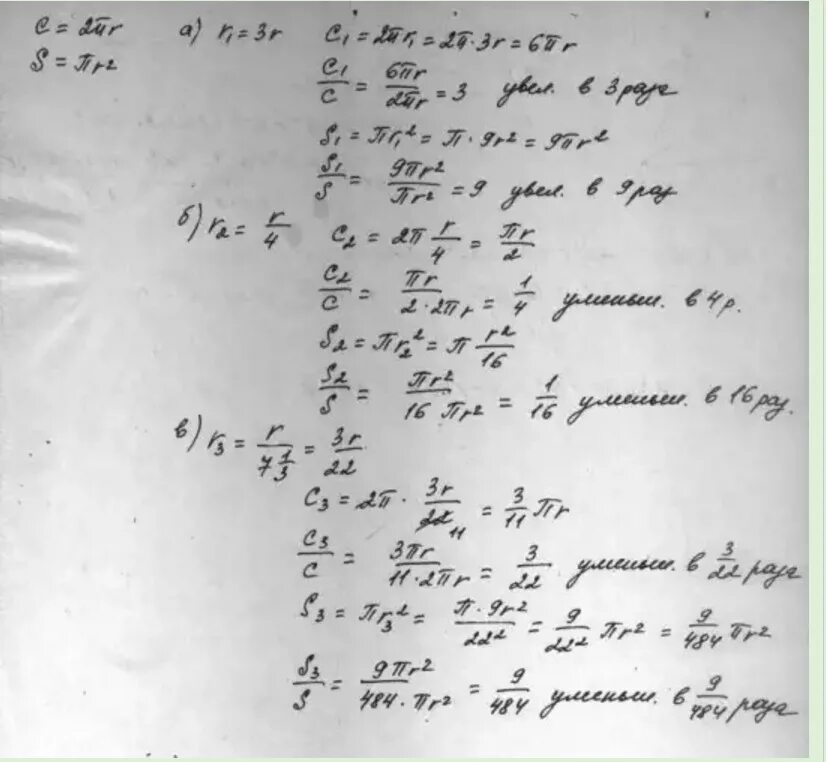 C = 2πr а) r₁ = 3r C₁ = 2πr₁ = 2π·3r = 6πr
S = πr²
C₁/C = 6πr/2πr = 3 увел. в 3 раза
S₁ = πr₁² = π·9r² = 9πr²
S₁/S = 9πr²/πr² = 9 увел. в 9 раз
б) r₂ = r/4 C₂ = 2π r/4 = πr/2
C₂/C = πr/2·2πr = 1/4 уменьш. в 4 р.
S₂ = πr₂² = π r²/16
S₂/S = πr²/16 πr² = 1/16 уменьш. в 16 раз.
в) r₃ = r/7 1/3 = 3r/22
C₃ = 2π · 3r/22 11 = 3/11 πr
C₃/C = 3πr/11·2πr = 3/22 уменьш. в 3/22 раза
S₃ = πr₃² = π·9r²/22² = 9/22² πr² = 9/484 πr²
S₃/S = 9πr²/484·πr² = 9/484 уменьш. в 9/484 раза